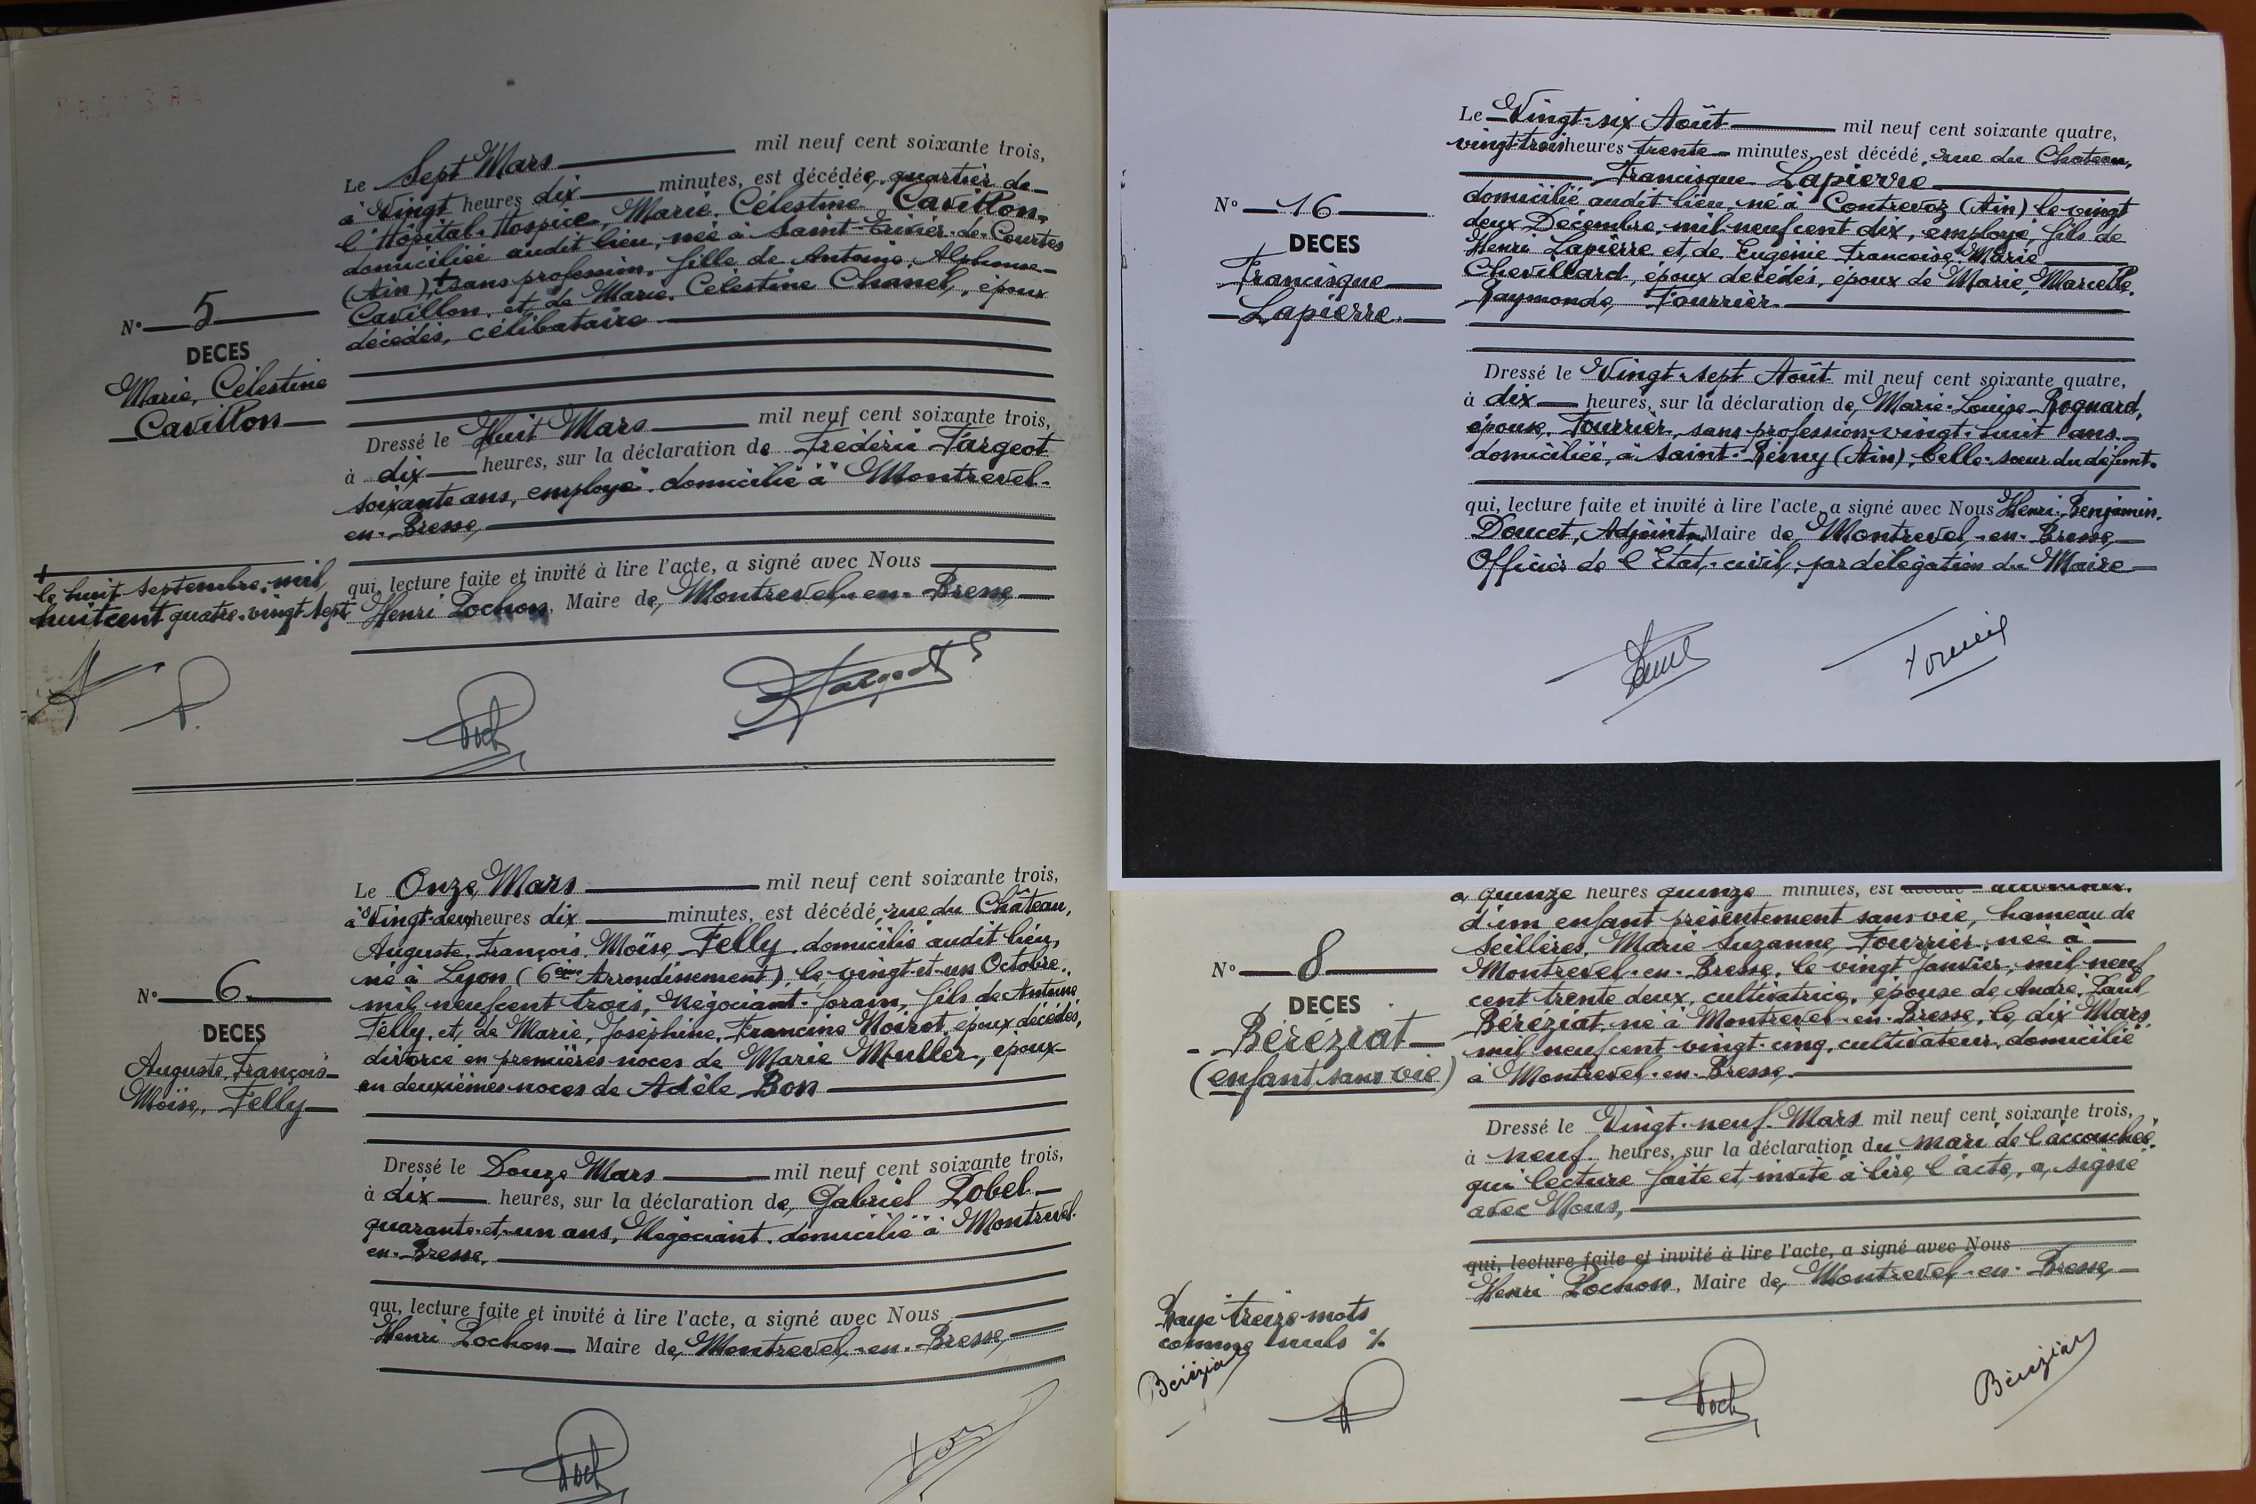 Le Sept Mars mil neuf cent soixante trois,
à Vingt heures dix minutes, est décédée, quartier de
l'Hôpital-Hospice, Marie, Célestine Cavillon,
domiciliée audit lieu, née à Saint-Trivier-de-Courtes
(Ain), + sans profession, fille de Antoine, Alphonse
Cavillon, et de Marie, Célestine Chanel, époux
décédés, célibataire
N° 5
DECES
Marie, Célestine
Cavillon
Dressé le Huit Mars mil neuf cent soixante trois,
à dix heures, sur la déclaration de Frédéric Fargeot
soixante ans, employé, domicilié à Montrevel-
en-Bresse
qui, lecture faite et invité à lire l'acte, a signé avec Nous
Henri Pochon, Maire de Montrevel-en-Bresse
+
le huit septembre, mil
huit cent quatre-vingt sept
Le Onze Mars mil neuf cent soixante trois,
à Vingt-deux heures dix minutes, est décédé, rue du Château,
Auguste, François, Moïse, Felly, domicilié audit lieu,
né à Lyon (6ème Arrondissement), le vingt-et-un Octobre,
mil neuf cent trois, Négociant-forain, fils de Antoine
Felly, et de Marie, Joséphine, Francine Noirot, époux décédés,
divorcé en premières noces de Marie Muller, époux
en deuxièmes noces de Adèle Bon
N° 6
DECES
Auguste, François
Moïse, Felly
Dressé le Douze Mars mil neuf cent soixante trois,
à dix heures, sur la déclaration de Gabriel Pobel
quarante-et-un ans, Négociant, domicilié à Montrevel-
en-Bresse,
qui, lecture faite et invité à lire l'acte, a signé avec Nous
Henri Pochon Maire de Montrevel-en-Bresse
Le Vingt-six Août mil neuf cent soixante quatre,
vingt-trois heures trente minutes, est décédé, rue du Chateau,
Francisque Lapierre
domicilié audit lieu, né à Contrevoz (Ain) le vingt
deux Décembre, mil neuf cent dix, employé, fils de
Henri Lapierre et de Eugénie Francoise Marie
Chevillard, époux décédés, époux de Marie, Marcelle,
Raymonde, Fourrier.
N° 16
DECES
Francisque
Lapierre.
Dressé le Vingt-sept Août mil neuf cent soixante quatre,
à dix heures, sur la déclaration de Marie-Louise Roguard,
épouse, Fourrier, sans profession, vingt-huit ans
domiciliée, à Saint-Rémy (Ain), belle-sœur du défunt.
qui, lecture faite et invité à lire l'acte, a signé avec Nous Henri-Benjamin,
Doucet, Adjoint au Maire de Montrevel-en-Bresse,
Officier de l'Etat-civil, par délégation du Maire
à quinze heures quinze minutes, est décédé
d'un enfant présentement sans vie, hameau de
Seillères, Marie Suzanne, Fourrier, née à
Montrevel-en-Bresse, le vingt Janvier, mil neuf
cent trente deux, cultivatrice, épouse de André, Paul
Béréziat, né à Montrevel-en-Bresse, le dix Mars
mil neuf cent vingt-cinq, cultivateur, domicilié
à Montrevel-en-Bresse.
N° 8
DECES
Béréziat
(enfant sans vie)
Dressé le Vingt-neuf Mars mil neuf cent soixante trois,
à neuf heures, sur la déclaration du mari de l'accouchée,
qui lecture faite et invité à lire l'acte, a signé
avec Nous,
qui, lecture faite et invité à lire l'acte, a signé avec Nous
Henri Pochon, Maire de Montrevel-en-Bresse
Rayé treize mots
comme nuls
Béréziat
Béréziat